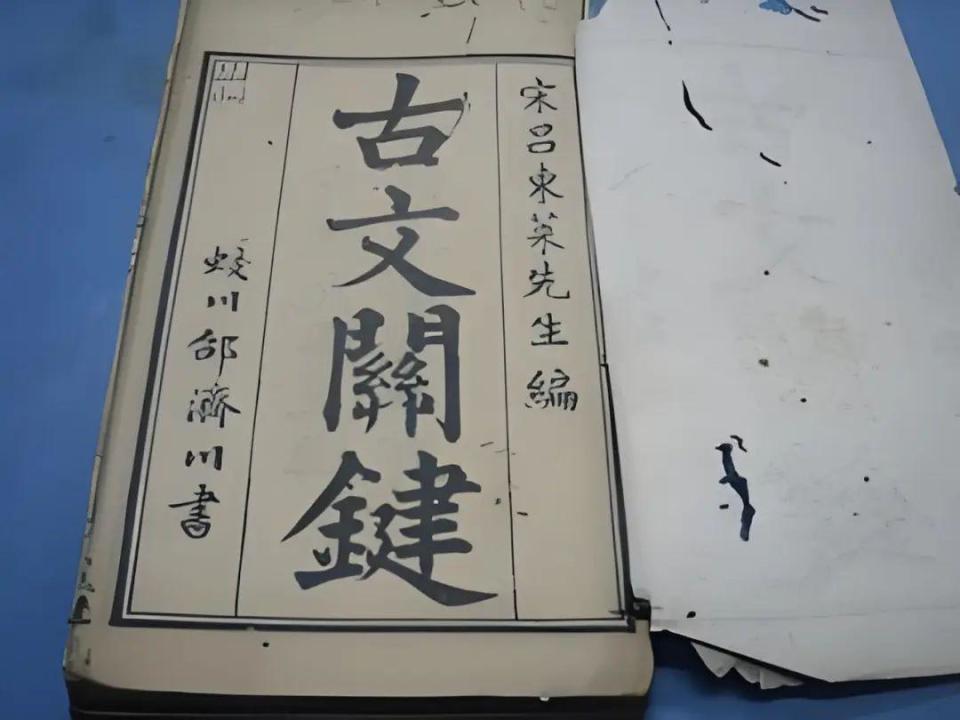 宋呂東萊先生編
古文關鍵
蛟川郃濟川書